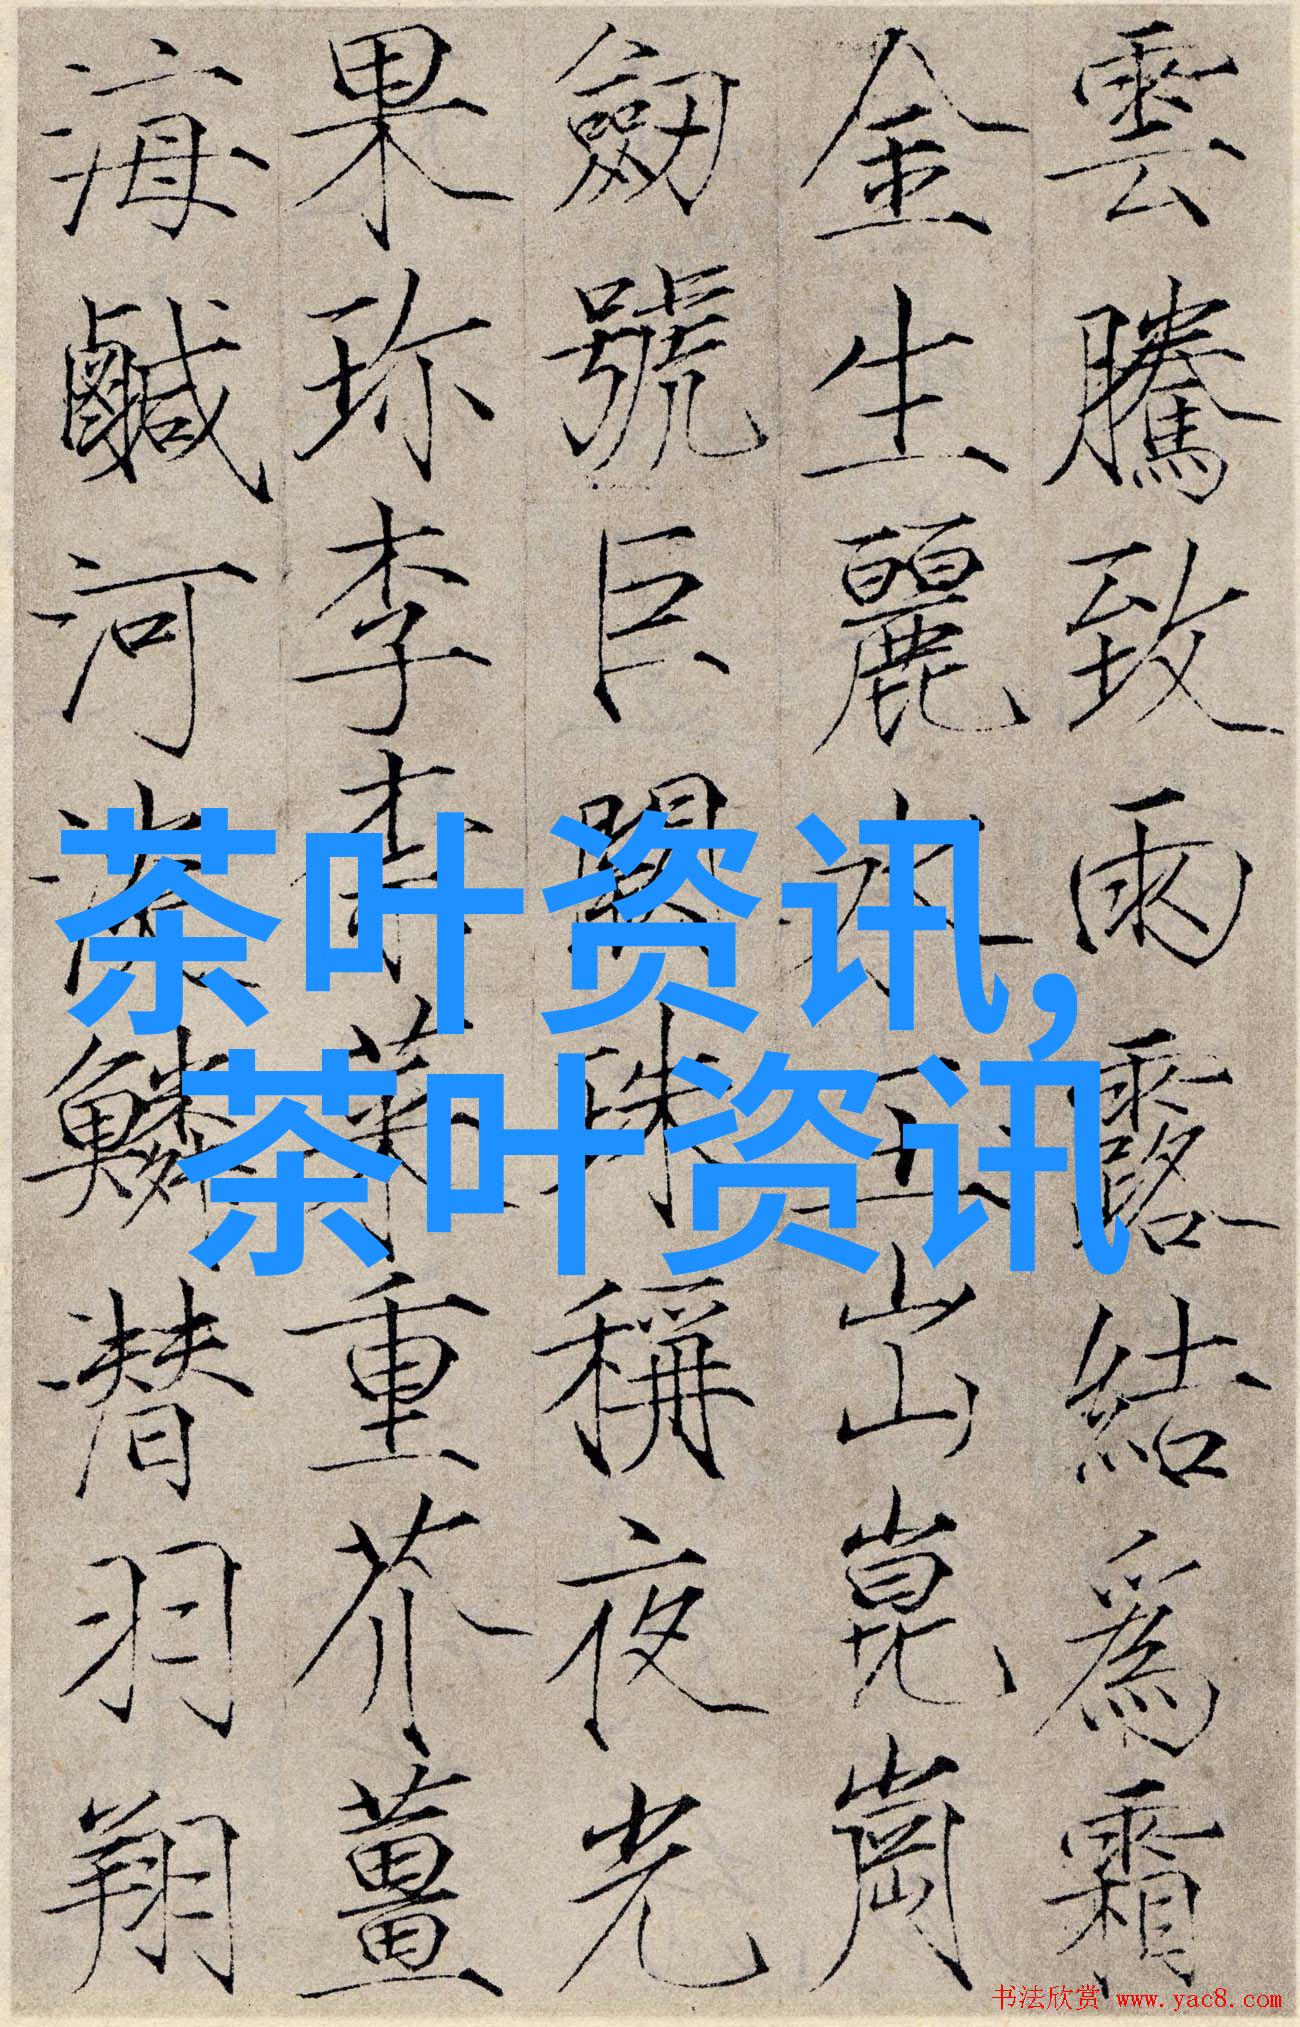 雲騰致雨露結爲霜
金生麗水玉出崑崗
劒號巨闕珠稱夜光
果珍李柰菜重芥薑
海鹹河淡鱗潜羽翔
茶叶资讯,
茶叶资讯
书法欣赏 www.yac8.com